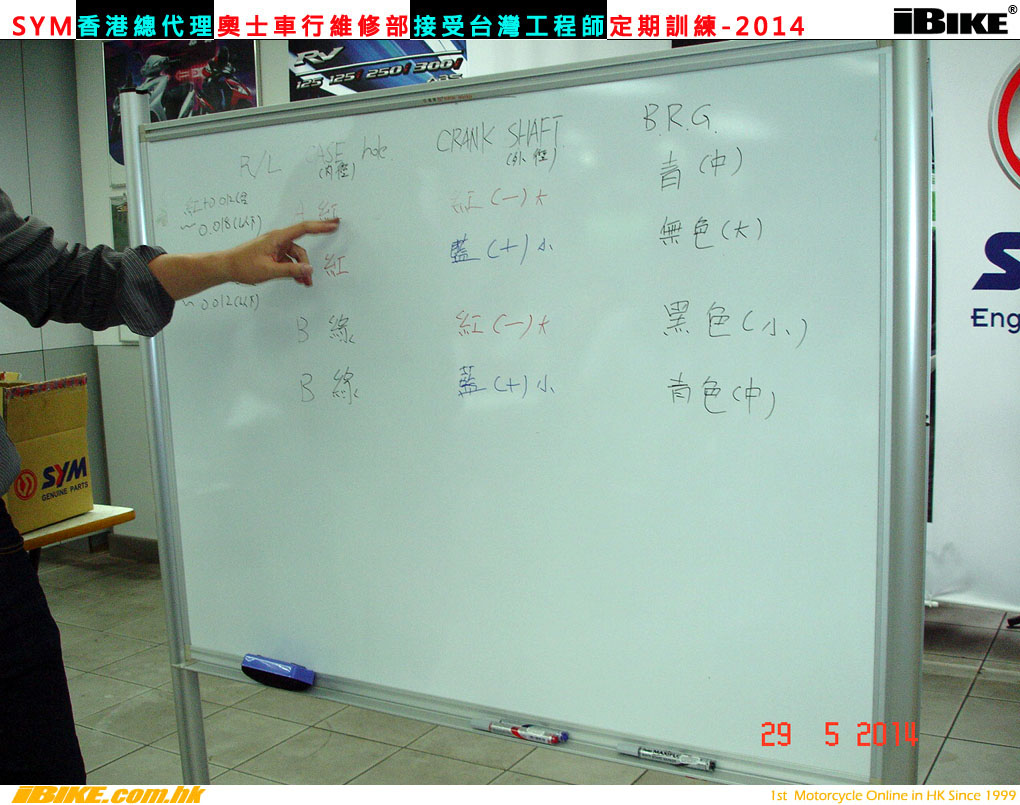 SYM香港總代理奧士車行維修部接受台灣工程師定期訓練-2014
iBIKE®
RV
125 125i 250i 300i
ABS
R/L CASE hole. CRANK SHAFT. B.R.G.
(內徑) (外徑)
紅+0.012(含
~0.018(以下)
紅 紅(一)大 青(中)
紅 藍(十)小 無色(大)
~0.012(以下)
B 綠 紅(一)大 黑色(小)
B 綠 藍(十)小 青色(中)
Eng
SYM
GENUINE PARTS
29 5 2014
iBIKE.com.hk
1st Motorcycle Online in HK Since 1999